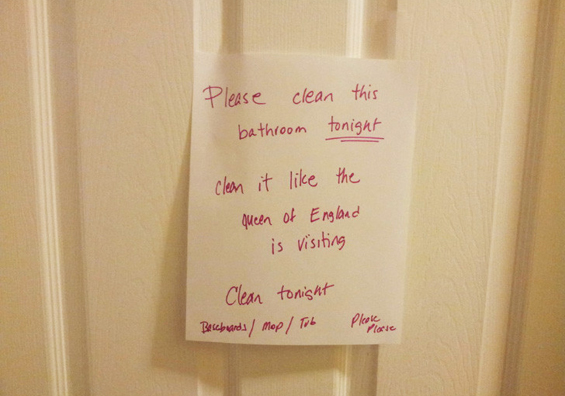 Please clean this
bathroom tonight
clean it like the
queen of England
is visiting
Clean tonight
Baseboards / mop / Tub
Please
Please